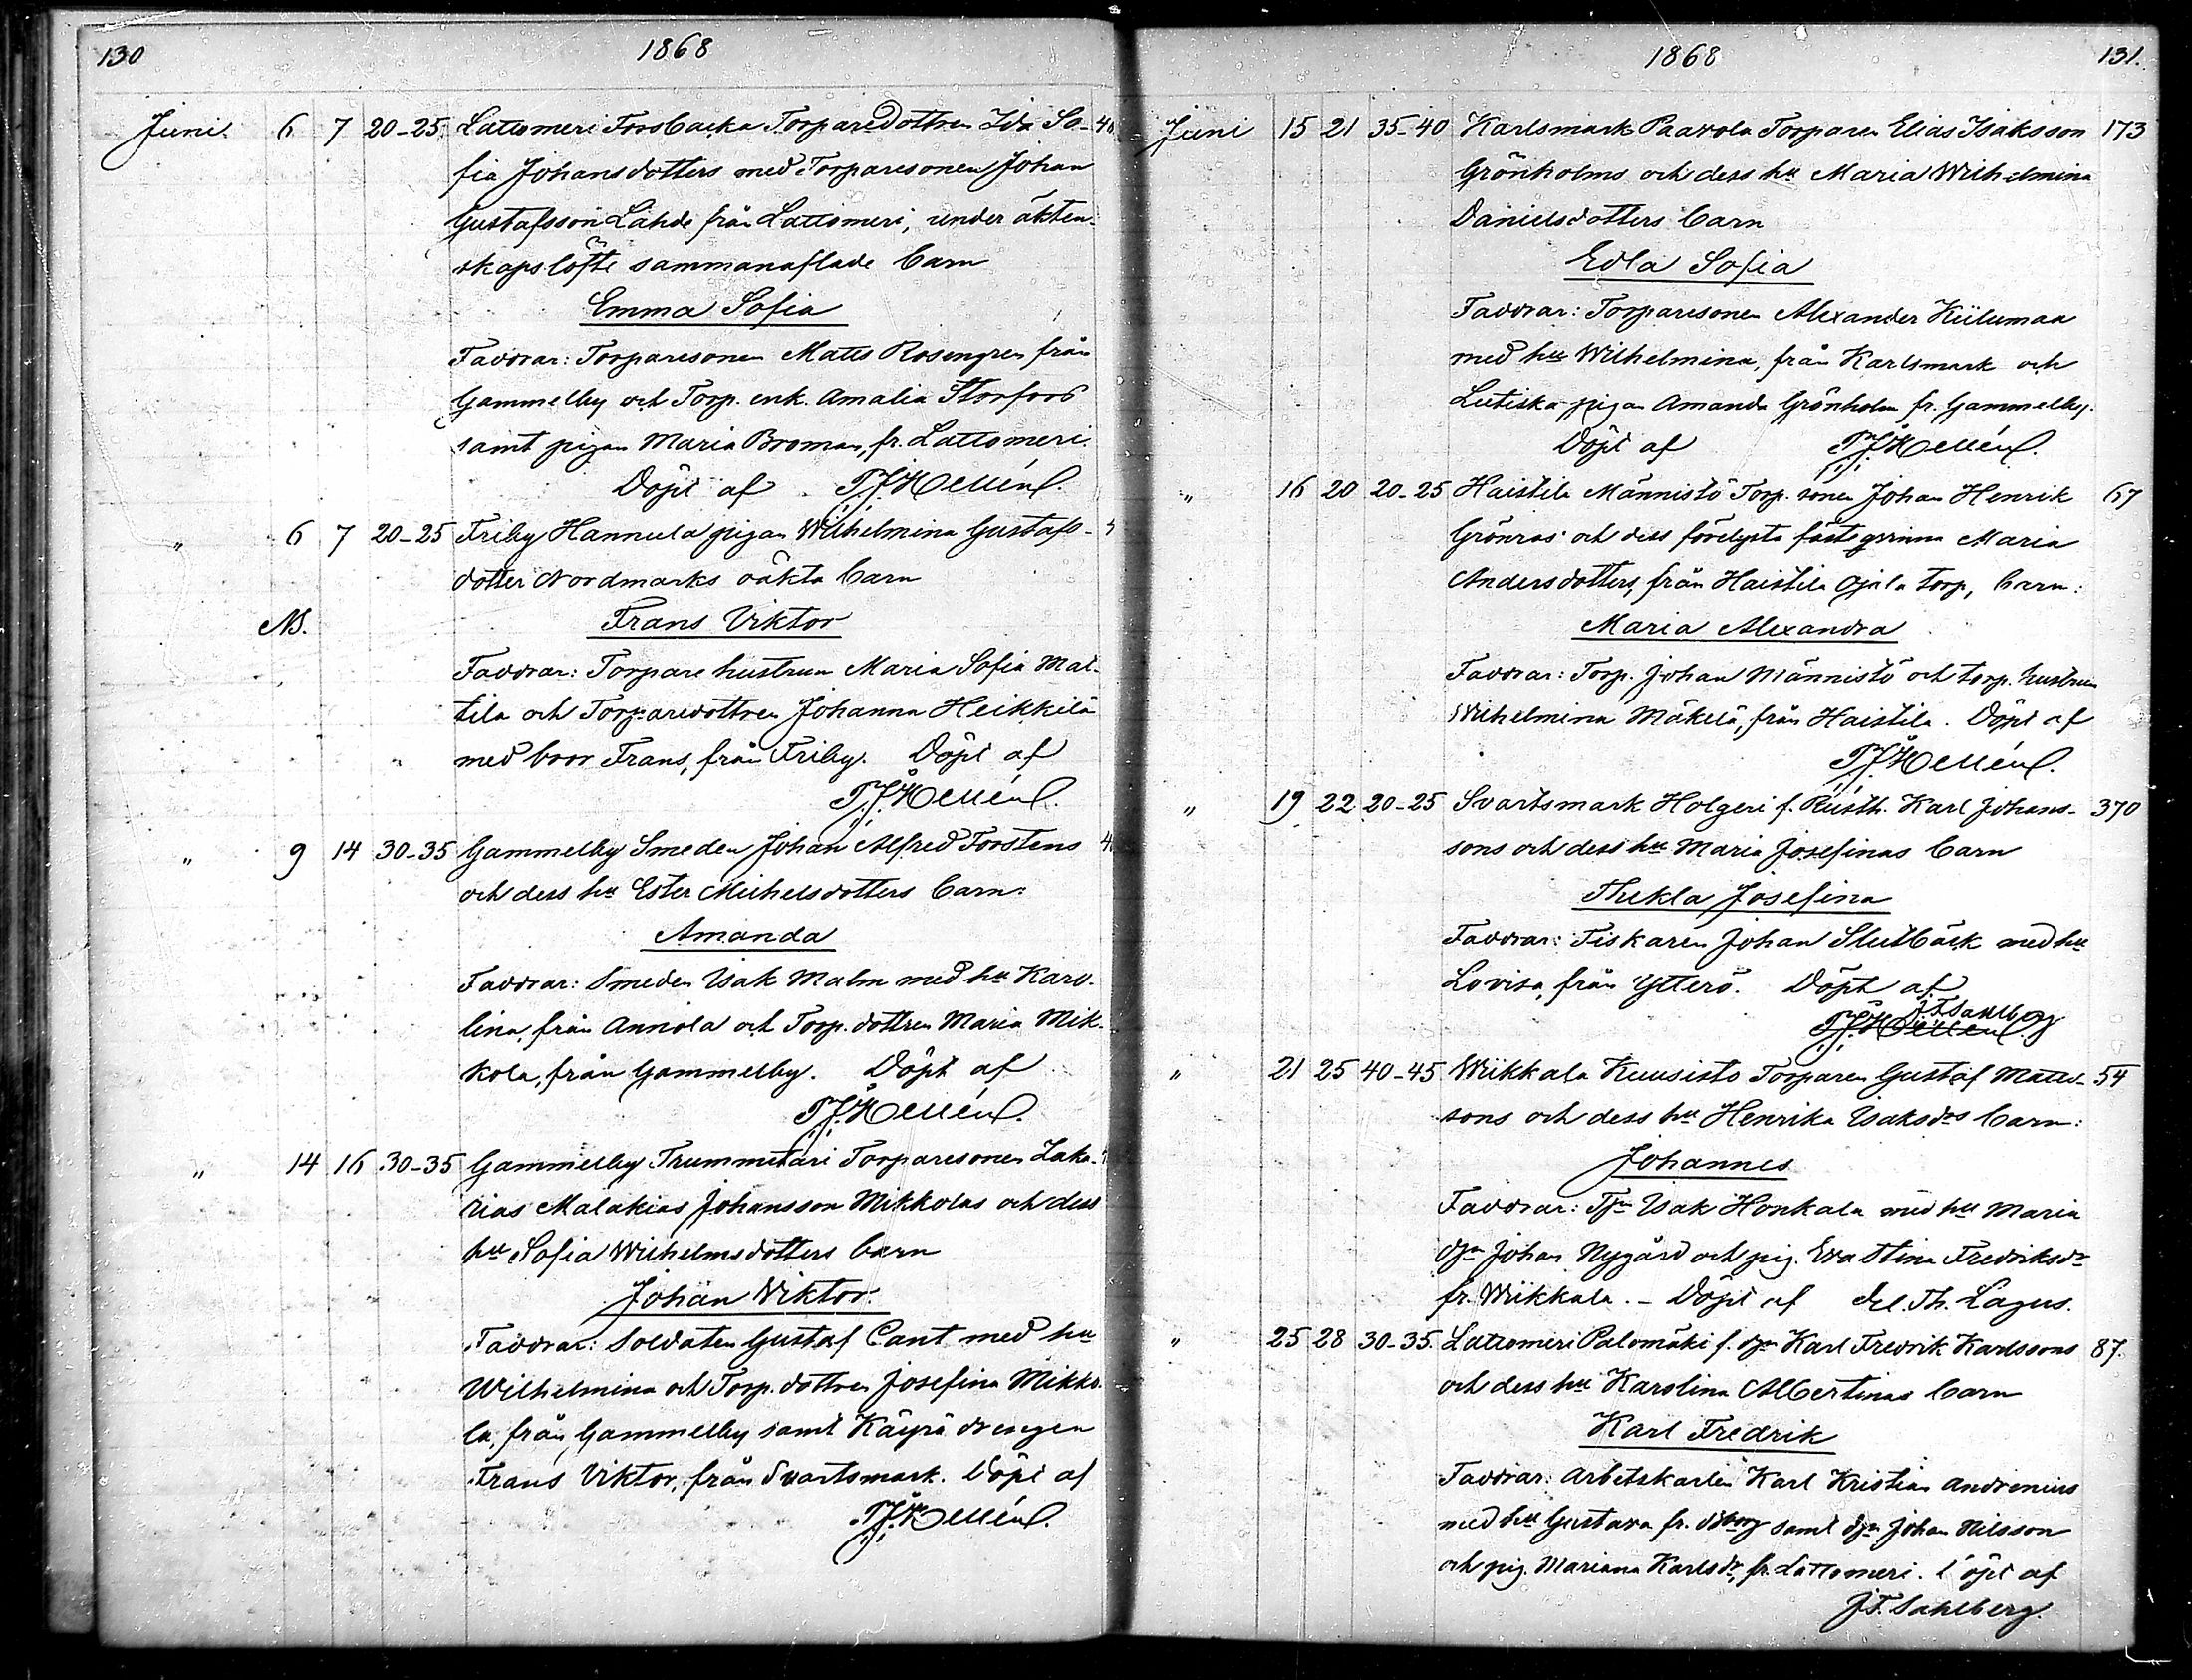 130 1868
Juni. 6 7 20-25 Lattomeri Forsbacka Torparedottren Ida So-
fia Johansdotters med Torparesonen Johan
Gustafsson Lähde från Lattomeri, under äkten-
skapslöfte sammanaflade barn
Emma Sofia
Faddrar: Torparesonen Matts Rosengren från
Gammelby och Torp. enk. Amalia Storfors
samt pigan Maria Broman, fr. Lattomeri.
Döpt af T.J. Hellén.
" 6 7 20-25 Friby Hannula pigan Wilhelmina Gustafs-
dotter Nordmarks oäkta barn
NB. Frans Viktor
Faddrar: Torpare hustrun Maria Sofia Mat-
tila och Torparedottren Johanna Heikkilä
med bror Frans, från Friby. Döpt af
T.J. Hellén.
" 9 14 30-35 Gammelby Smeden Johan Alfred Forstens
och dess hu Ester Michelsdotters barn:
Amanda
Faddrar: Smeden Isak Malm med hu Karo-
lina, från Annola och Torp. dottren Maria Mik-
kola, från Gammelby. Döpt af
T.J. Hellén.
" 14 16 30-35 Gammelby Trummetari Torparesonen Zaka-
rias Malakias Johansson Mikkolas och dess
hu Sofia Wilhelmsdotters barn
Johan Viktor.
Faddrar: Soldaten Gustaf Cant med hu
Wilhelmina och Torp. dottren Josefina Mikko-
la, från Gammelby samt Käyrä drengen
Frans Viktor, från Svartsmark. Döpt af
T.J. Hellén.
1868 131.
Juni 15 21 35-40 Karlsmark Paavola Torparen Elias Isaksson 173
Grönholms och dess hu Maria Wilhelmina
Danielsdotters barn
Edla Sofia
Faddrar: Torparesonen Alexander Kiilumaa
med hu Wilhelmina, från Karlsmark och
pigan Amanda Grönholm fr. Gammelby.
Döpt af T.J. Hellén.
" 16 20 20-25 Haistila Männistö Torp. sonen Johan Henrik 67
Grönros och dess förelysta fästeqvinna Maria
Andersdotters, från Haistila Ojala torp, barn:
Maria Alexandra
Faddrar: Torp. Johan Männistö och torp. hustrun
Wilhelmina Mäkelä, från Haistila. Döpt af
T.J. Hellén.
" 19 22 20-25 Svartsmark Holgeri f. Rusth. Karl Johans- 370
sons och dess hu Maria Josefinas barn
Thekla Josefina
Faddrar: Fiskaren Johan Slutbäck med hu
Lovisa, från Ytterö. Döpt af
J.F. Sahlberg
T.J. Hellén.
" 21 25 40-45 Wiikkala Kuusisto Torparen Gustaf Matts- 54
sons och dess hu Henrika Isaksdrs barn:
Johannes
Faddrar: Isak Honkala med hu Maria
drn Johan Nygård och pig. Eva Stina Fredriksdr
fr. Wiikkala. - Döpt af Th. Lagus.
" 25 28 30-35. Lattomeri Palomäki f. drn Karl Fredrik Karlssons 87.
och dess hu Karolina Albertinas barn
Karl Fredrik
Faddrar: Arbetskarlen Karl Kristian Andrenius
med hu Gustava fr. samt drn Johan Nilsson
och pig. Mariana Karlsdr, fr. Lattomeri. Döpt af
J.F. Sahlberg.